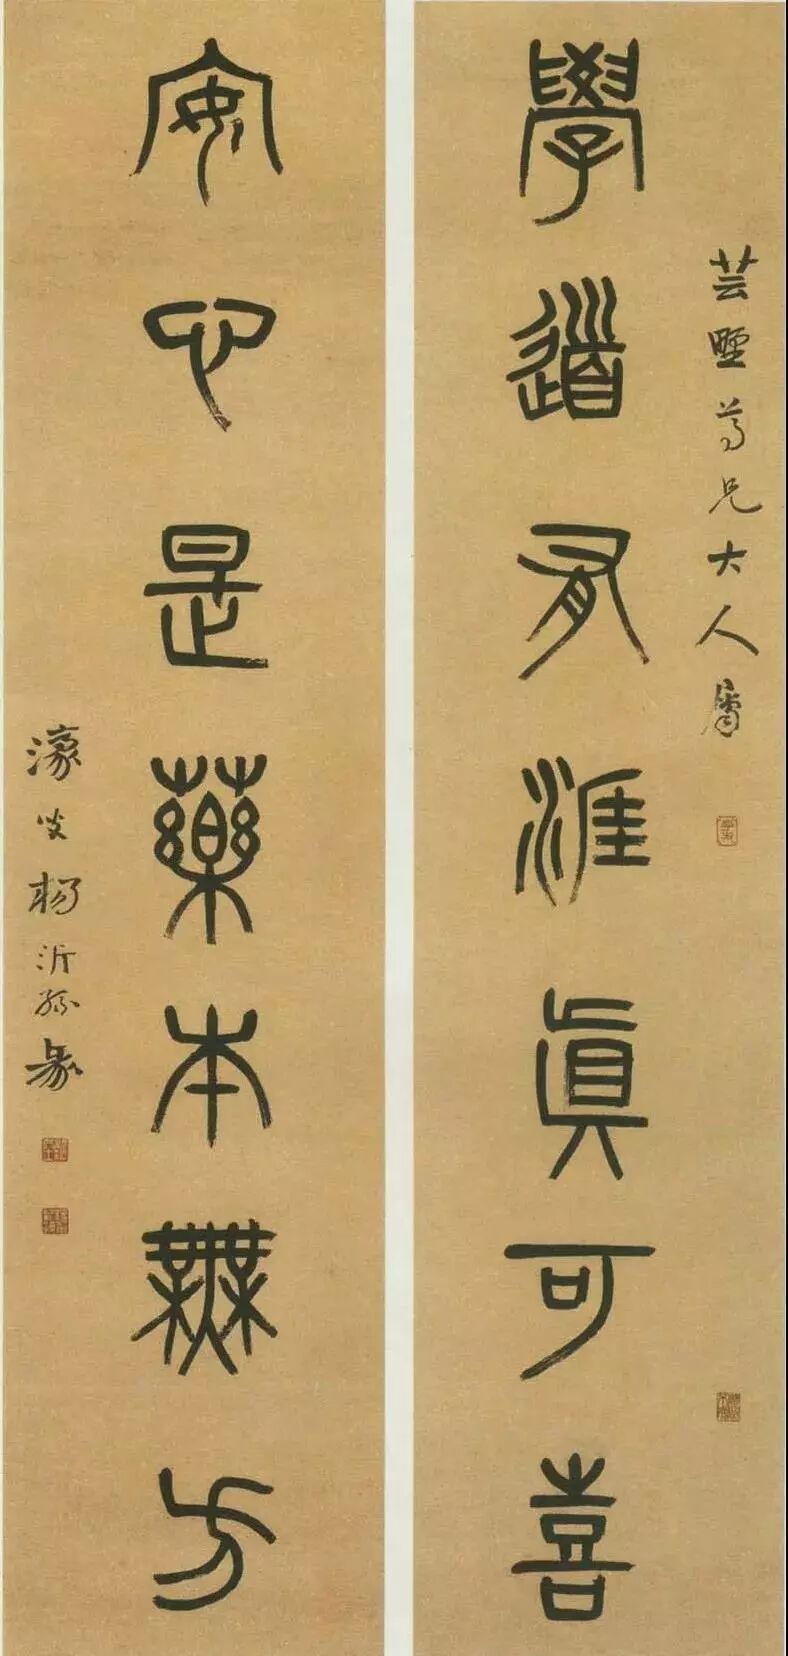 芸尊兄大人屬
學道有涯眞可喜
安心是藥本無方
濠叟楊沂孫篆